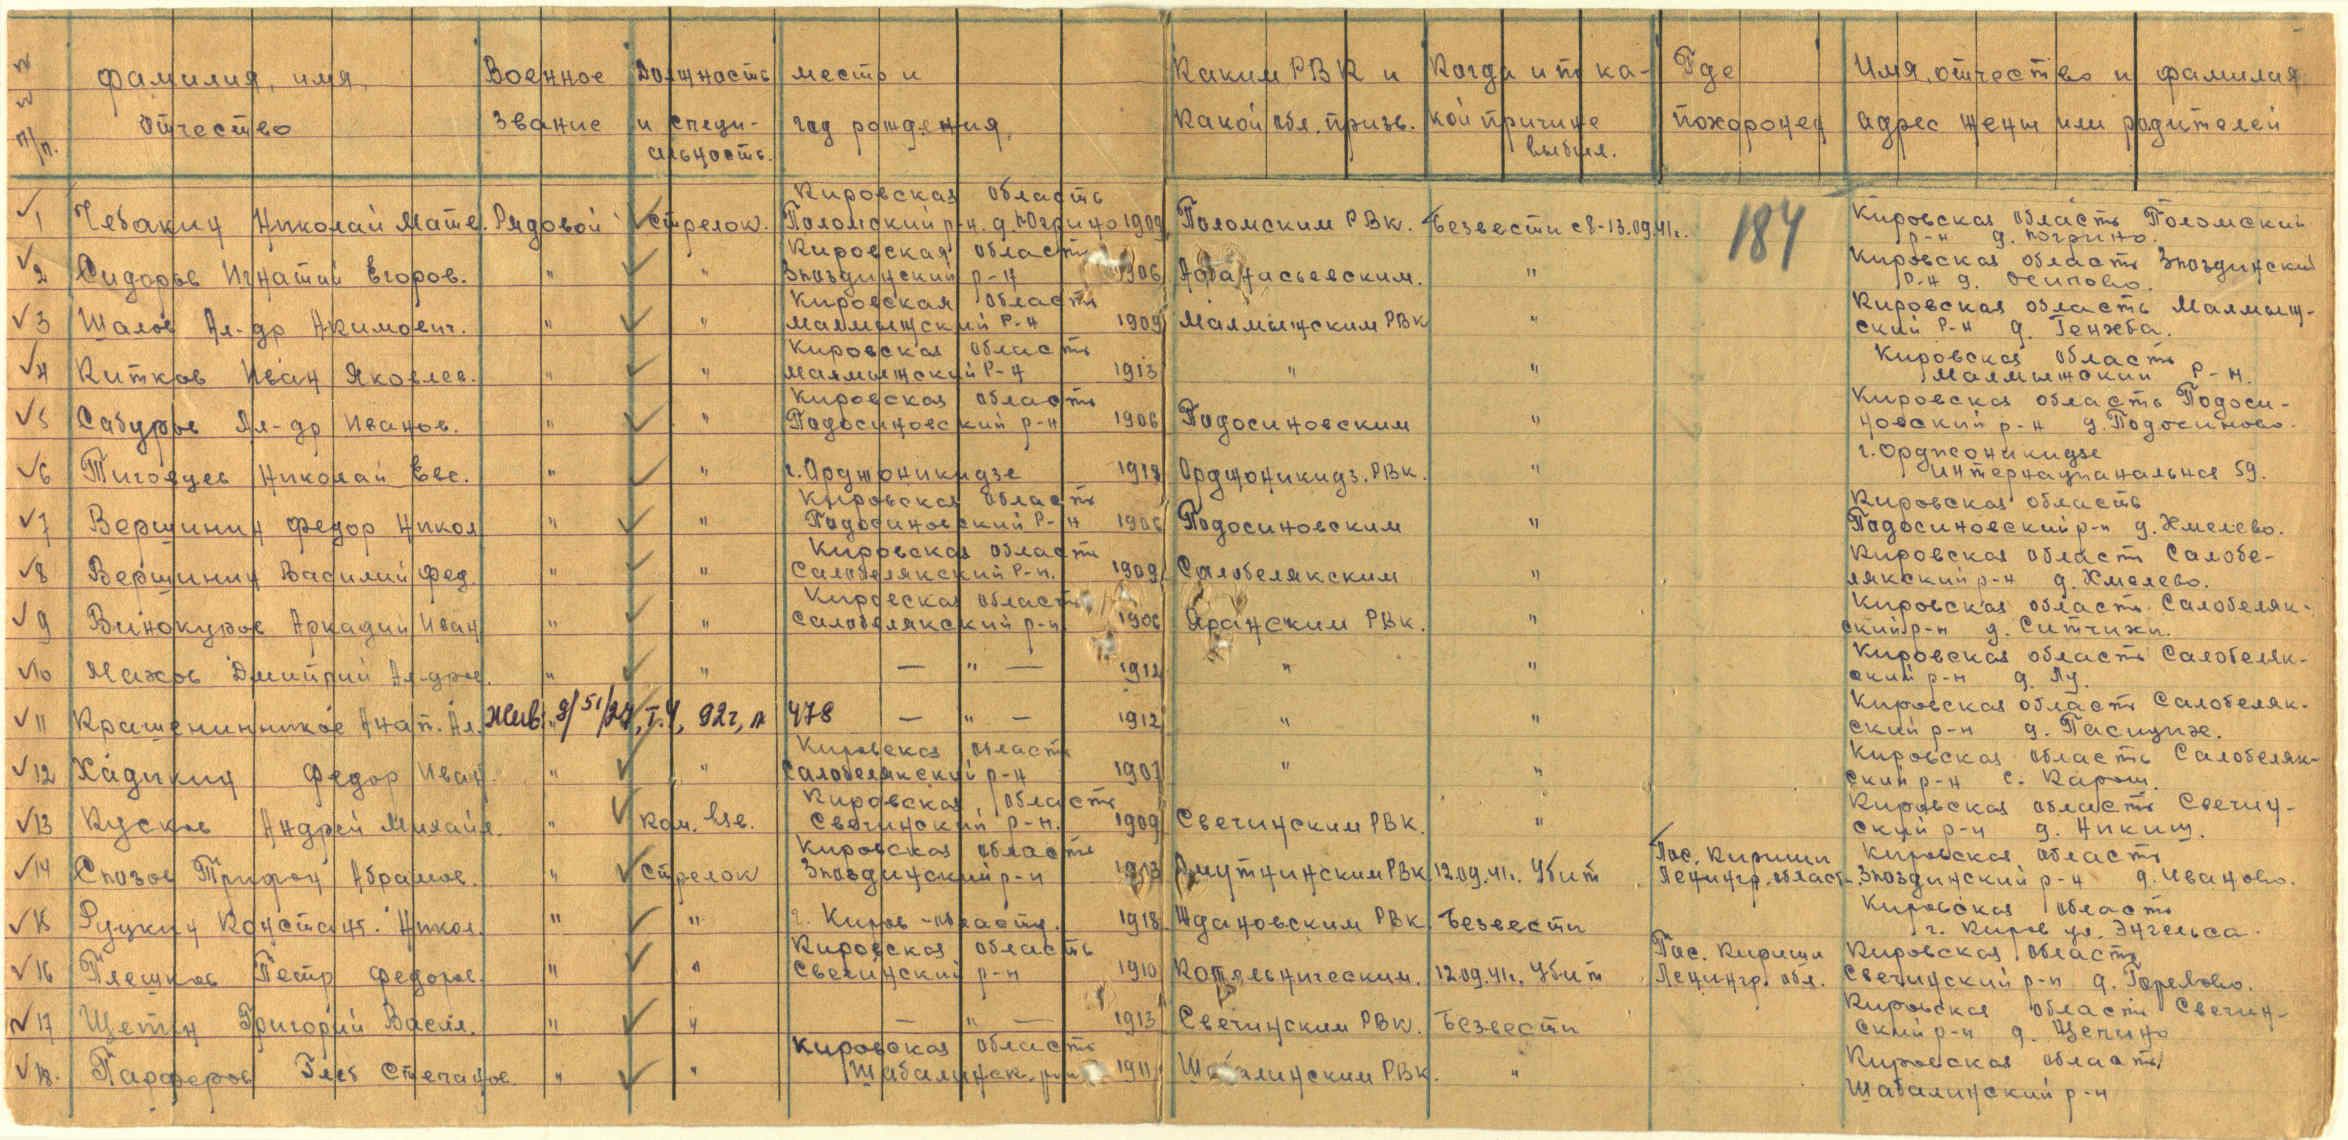 №№ п/п. фамилия, имя, отчество Военное звание Должность и специальность. место и год рождения, Каким РВК и какой обл. призв. Когда и по ка-кой причине выбыл. Где похоронен Имя, отчество и фамилия адрес жены или родителей
184
Кировская область
1 Чебакин Николай Матв. Рядовой стрелок. Поломский р-н. д. 1909 Поломским РВК. Безвести с 8-13.09.41г. Кировская область Поломский
р-н д.
Кировская область
2 Сидоров Игнатий Егоров. " " Зюздинский р-н 1906 Афанасьевским. " Кировская область Зюздинский
р-н д. Осипово.
Кировская область
3 Шалов Ал-др Акимович. " " Малмыжский р-н 1909 Малмыжским РВК " Кировская область Малмыж-
ский р-н д.
Кировская область
4 Китков Иван Яковлев. " " Малмыжский р-н 1913 " " Кировская область
Малмыжский р-н.
Кировская область
5 Сабуров Ал-др Иванов. " " Подосиновский р-н 1906 Подосиновским " Кировская область Подоси-
новский р-н д. Подосиново.
6 Николай Евс. " " г. Орджоникидзе 1918 Орджоникидз. РВК. " г. Орджоникидзе
Интернациональная 59.
Кировская область
7 Вершинин Федор Никол " " Подосиновский р-н 1906 Подосиновским " Кировская область
Подосиновский р-н д. Хмелево.
Кировская область
8 Вершинин Василий Фед. " " Салобелякский р-н. 1909 Салобелякским " Кировская область Салобе-
лякский р-н д. Хмелево.
Кировская область
9 Винокуров Аркадий Иван " " Салобелякский р-н 1906 Яранским РВК. " Кировская область Салобеляк-
ский р-н д.
10 Дмитрий Ал-дров. " " — " — 1912 " " Кировская область Салобеляк-
ский р-н д.
11 Крашенинников Анат. Ал. Жив. " 9/51/24, т. 4, 92г, л 478 — " — 1912 " " Кировская область Салобеляк-
ский р-н д.
Кировская область
12 Хадыкин Федор Иван. " " Салобелякский р-н 1907 " " Кировская область Салобеляк-
ский р-н с.
Кировская область
13 Кусков Андрей Михайл. " Ком. взв. Свечинский р-н. 1909 Свечинским РВК. " Кировская область Свечин-
ский р-н д.
Кировская область
14 Спозов Трифон Абрамов. " стрелок Зюздинский р-н 1913 Омутнинским РВК 12.09.41г. Убит Пос. Кириши Ленингр. област. Кировская область
Зюздинский р-н д. Иваново.
15 Руцкин Констант. Никол. " " г. Киров - область. 1918 Ждановским РВК Безвести Кировская область
г. Киров ул. Энгельса.
Кировская область
16 Плешков Петр Федоров. " " Свечинский р-н 1910 Котельническим. 12.09.41г. Убит Пос. Кириши Ленингр. обл. Кировская область
Свечинский р-н д. Горелово.
17 Щетин Григорий Васил. " " — " — 1913 Свечинским РВК. Безвести Кировская область Свечин-
ский р-н д.
Кировская область
18. Глеб Степанов " " Шабалинск. р-н 1911 Шабалинским РВК. " Кировская область
Шабалинский р-н